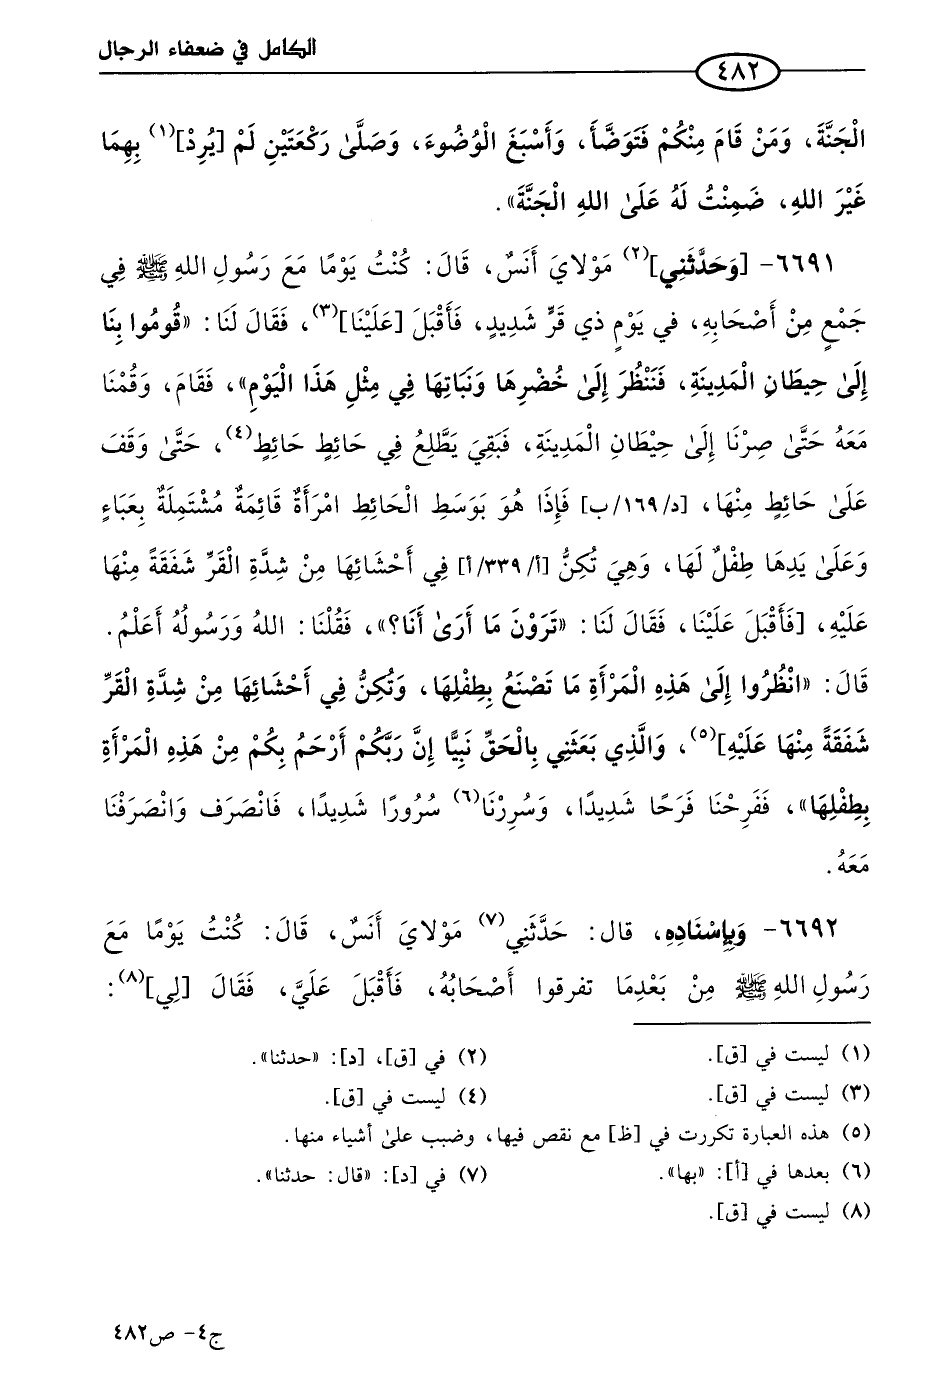 الكامل في ضعفاء الرجال
٤٨٢
الْجَنَّةَ، وَمَنْ قَامَ مِنْكُمْ فَتَوَضَّأَ، وَأَسْبَغَ الْوُضُوءَ، وَصَلَّىٰ رَكْعَتَيْنِ لَمْ [يُرِدْ](١) بِهِمَا
غَيْرَ اللهِ، ضَمِنْتُ لَهُ عَلَىٰ اللهِ الْجَنَّةَ».
٦٦٩١- [وَحَدَّثَنِي](٢) مَوْلَايَ أَنَسٌ، قَالَ: كُنْتُ يَوْمًا مَعَ رَسُولِ اللهِ ﷺ فِي
جَمْعٍ مِنْ أَصْحَابِهِ، في يَوْمٍ ذي قَرٍّ شَدِيدٍ، فَأَقْبَلَ [عَلَيْنَا](٣)، فَقَالَ لَنَا: «قُومُوا بِنَا
إِلَىٰ حِيطَانِ الْمَدِينَةِ، فَنَنْظُرَ إِلَىٰ خُضْرِهَا وَنَبَاتِهَا فِي مِثْلِ هَذَا الْيَوْمِ»، فَقَامَ، وَقُمْنَا
مَعَهُ حَتَّىٰ صِرْنَا إِلَىٰ حِيْطَانِ الْمَدِينَةِ، فَبَقِيَ يَطَّلِعُ فِي حَائِطٍ حَائِطٍ(٤)، حَتَّىٰ وَقَفَ
عَلَىٰ حَائِطٍ مِنْهَا، [د/١٦٩/ب] فَإِذَا هُوَ بَوَسَطِ الْحَائِطِ امْرَأَةٌ قَائِمَةٌ مُشْتَمِلَةٌ بِعَبَاءٍ
وَعَلَىٰ يَدِهَا طِفْلٌ لَهَا، وَهِيَ تُكِنُّ [أ/٣٣٩/أ] فِي أَحْشَائِهَا مِنْ شِدَّةِ الْقَرِّ شَفَقَةً مِنْهَا
عَلَيْهِ، [فَأَقْبَلَ عَلَيْنَا، فَقَالَ لَنَا: «تَرَوْنَ مَا أَرَىٰ أَنَا؟»، فَقُلْنَا: اللهُ وَرَسُولُهُ أَعْلَمُ.
قَالَ: «انْظُرُوا إِلَىٰ هَذِهِ الْمَرْأَةِ مَا تَصْنَعُ بِطِفْلِهَا، وَتُكِنُّ فِي أَحْشَائِهَا مِنْ شِدَّةِ الْقَرِّ
شَفَقَةً مِنْهَا عَلَيْهِ](٥)، وَالَّذِي بَعَثَنِي بِالْحَقِّ نَبِيًّا إِنَّ رَبَّكُمْ أَرْحَمُ بِكُمْ مِنْ هَذِهِ الْمَرْأَةِ
بِطِفْلِهَا»، فَفَرِحْنَا فَرَحًا شَدِيدًا، وَسُرِرْنَا(٦) سُرُورًا شَدِيدًا، فَانْصَرَف وَانْصَرَفْنَا
مَعَهُ.
٦٦٩٢- وَبِإِسْنَادِهِ، قال: حَدَّثَنِي(٧) مَوْلَايَ أَنَسٌ، قَالَ: كُنْتُ يَوْمًا مَعَ
رَسُولِ اللهِ ﷺ مِنْ بَعْدِمَا تفرقوا أَصْحَابُهُ، فَأَقْبَلَ عَلَيَّ، فَقَالَ [لِي](٨):
(١) ليست في [ق]. (٢) في [ق]، [د]: «حدثنا».
(٣) ليست في [ق]. (٤) ليست في [ق].
(٥) هذه العبارة تكررت في [ظ] مع نقص فيها، وضبب علىٰ أشياء منها.
(٦) بعدها في [أ]: «بها». (٧) في [د]: «قال: حدثنا».
(٨) ليست في [ق].
ج٤- ص٤٨٢